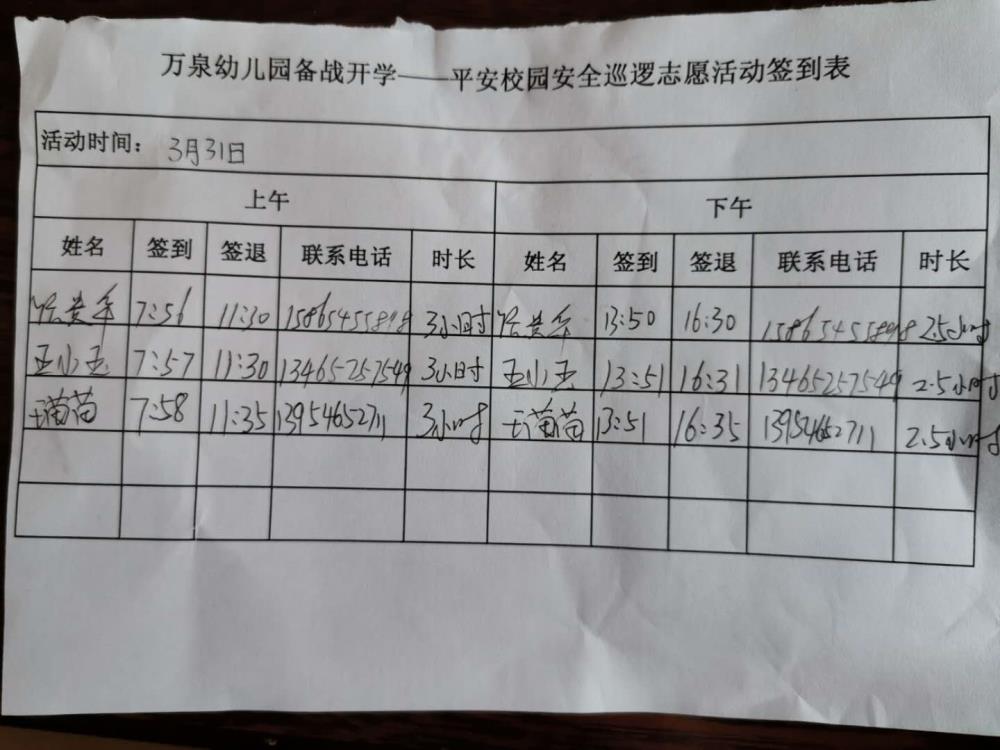 万泉幼儿园备战开学——平安校园安全巡逻志愿活动签到表
活动时间: 3月31日
上午 下午
姓名 签到 签退 联系电话 时长 姓名 签到 签退 联系电话 时长
7:56 11:30 15865455898 3小时 13:50 16:30 15865455898 2.5小时
王小玉 7:57 11:30 13465257549 3小时 王小玉 13:51 16:31 13465257549 2.5小时
王苗苗 7:58 11:35 13954652711 3小时 王苗苗 13:51 16:35 13954652711 2.5小时